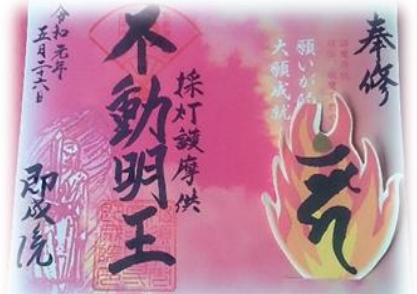 奉修
願いが
大願成就
採灯護摩供
不動明王
令和元年
五月二十六日
即成院